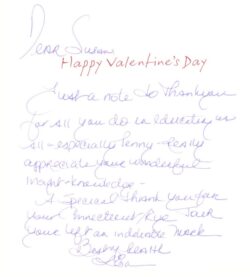 Dear Susan
Happy Valentine's Day
Just a note to Thank you
for all you do in educating us
all - especially Penny - really
appreciate your wonderful
insight - knowledge -
A Special Thank you for
your
your left an indelible mark
Best of health
Lisa